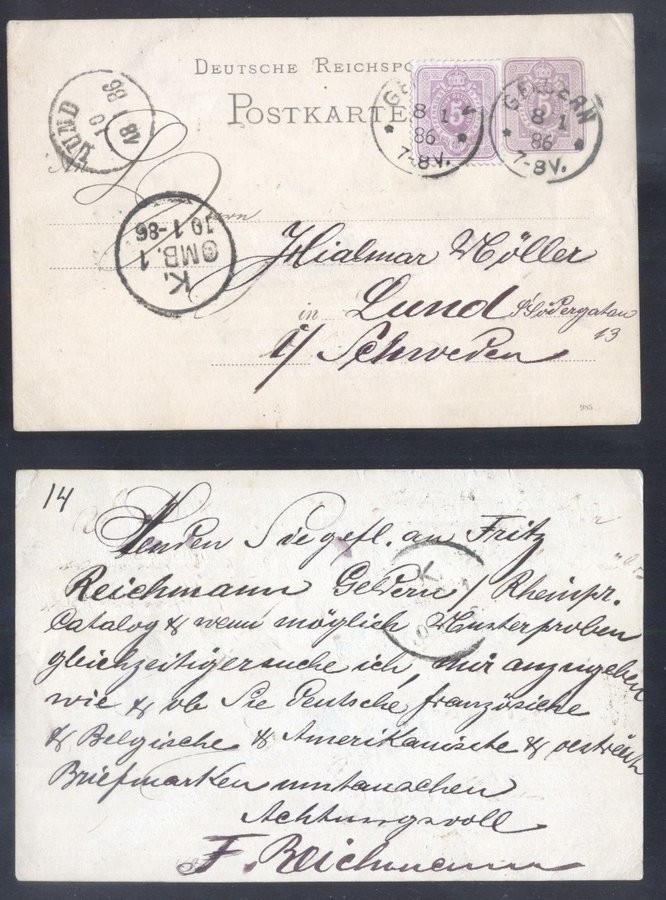 DEUTSCHE REICHSPO
POSTKARTE
GELDERN
8 1
86
7-8V.
5
GELDERN
8 1
86
7-8V.
5
LUND
10 1
86
K.
OMB. 1
10 1-86
Herrn
Hialmar Möller
in Lund S:Södergatan
13
i/ Schweden
14
Senden Sie gefl. an Fritz
Reichmann Geldern / Rheinpr.
Catalog & wenn möglich Musterproben
gleichzeitig ersuche ich, mir anzugeben
wie & ob Sie deutsche französische
& Belgische & Amerikanische & oestreich
Briefmarken umtauschen
Achtungsvoll
F. Reichmann
K